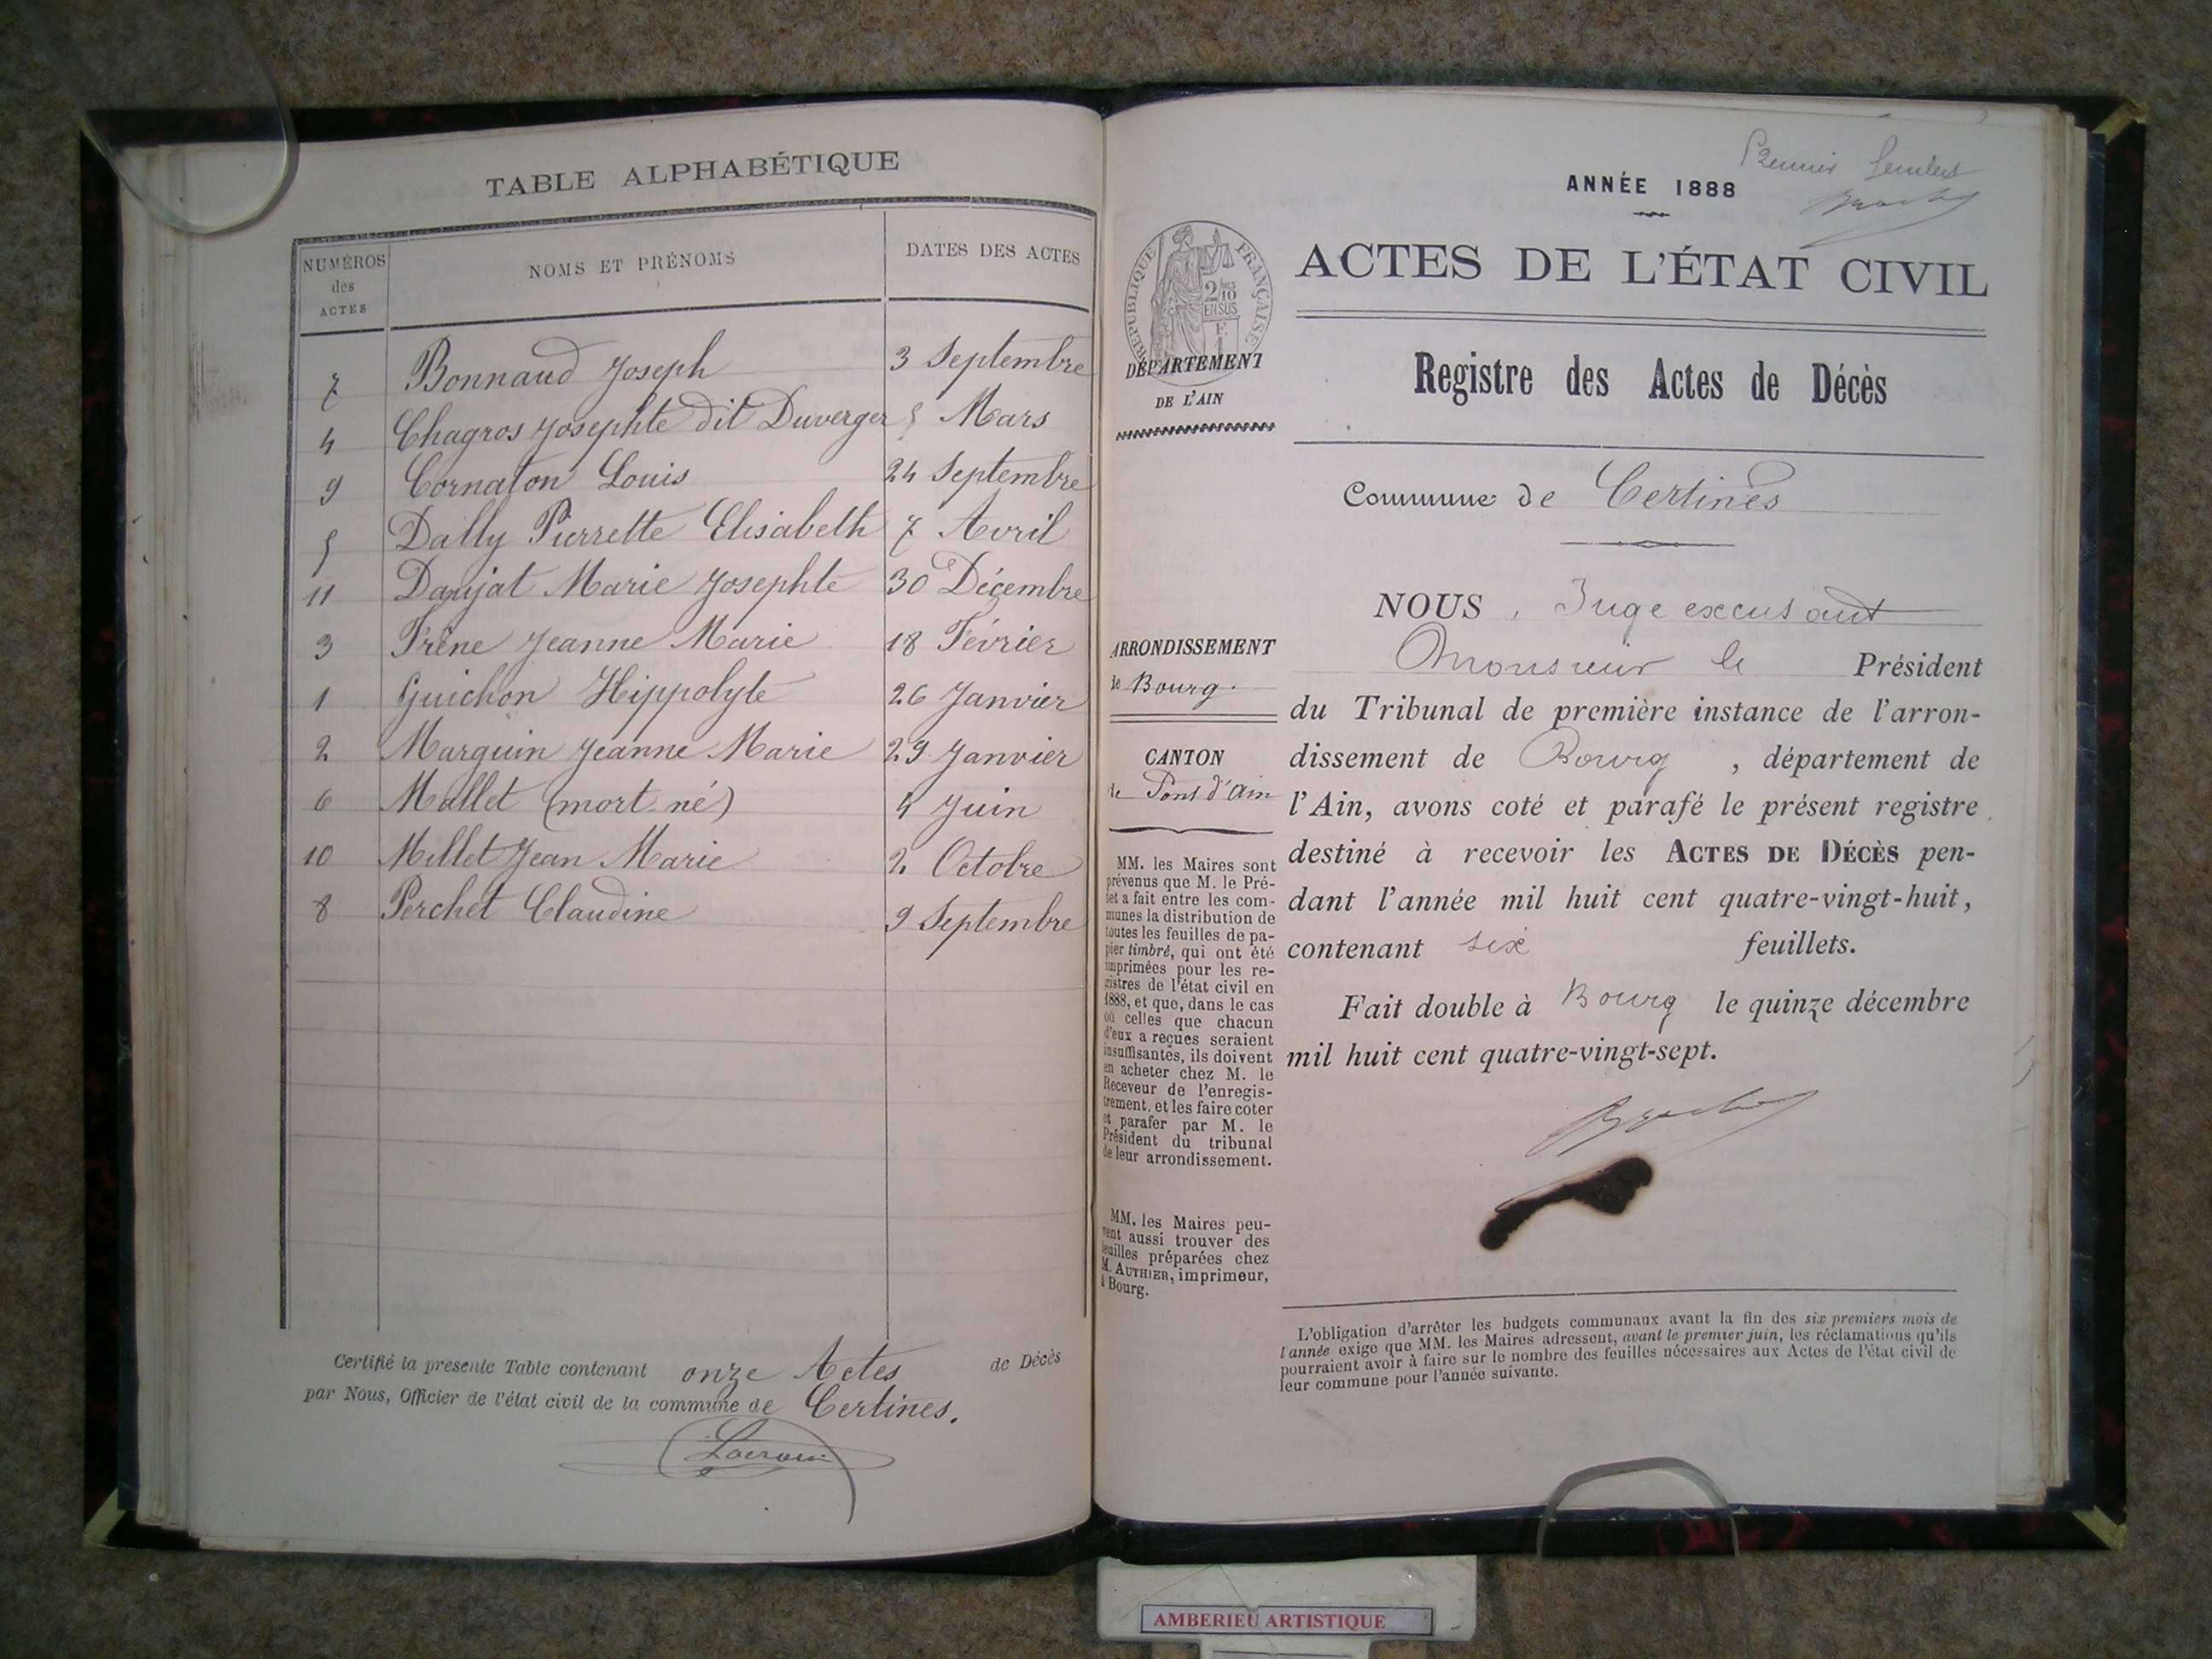 TABLE ALPHABÉTIQUE
NUMÉROS des ACTES
NOMS ET PRÉNOMS
DATES DES ACTES
7 Bonnaud Joseph 3 Septembre
4 Chagros Josephte dit Duverger 5 Mars
9 Cornaton Louis 24 Septembre
5 Dally Pierrette Elisabeth 7 Avril
11 Danjat Marie Josephte 30 Décembre
3 Frêne Jeanne Marie 18 Février
1 Guichon Hippolyte 26 Janvier
2 Marguin Jeanne Marie 29 Janvier
6 Mallet (mort né) 4 Juin
10 Millet Jean Marie 2 Octobre
8 Perchet Claudine 9 Septembre
Certifié la presente Table contenant onze Actes de Décès
par Nous, Officier de l'état civil de la commune de Certines.
Premier feuillet
ANNÉE 1888
RÉPUBLIQUE FRANÇAISE
2/10
EN SUS
ACTES DE L'ÉTAT CIVIL
DÉPARTEMENT
DE L'AIN
Registre des Actes de Décès
Commune de Certines
ARRONDISSEMENT
de Bourg.
CANTON
de Pont d'Ain
MM. les Maires sont
prévenus que M. le Pré-
fet a fait entre les com-
munes la distribution de
toutes les feuilles de pa-
pier timbré, qui ont été
imprimées pour les re-
gistres de l'état civil en
1888, et que, dans le cas
où celles que chacun
d'eux a reçues seraient
insuffisantes, ils doivent
en acheter chez M. le
Receveur de l'enregis-
trement, et les faire coter
et parafer par M. le
Président du tribunal
de leur arrondissement.
MM. les Maires peu-
vent aussi trouver des
feuilles préparées chez
M. AUTHIER, imprimeur,
à Bourg.
NOUS, Juge excusant
Monsieur le Président
du Tribunal de première instance de l'arron-
dissement de Bourg, département de
l'Ain, avons coté et parafé le présent registre
destiné à recevoir les ACTES DE DÉCÈS pen-
dant l'année mil huit cent quatre-vingt-huit,
contenant six feuillets.
Fait double à Bourg le quinze décembre
mil huit cent quatre-vingt-sept.
L'obligation d'arrêter les budgets communaux avant la fin des six premiers mois de
l'année exige que MM. les Maires adressent, avant le premier juin, les réclamations qu'ils
pourraient avoir à faire sur le nombre des feuilles nécessaires aux Actes de l'état civil de
leur commune pour l'année suivante.
AMBERIEU ARTISTIQUE